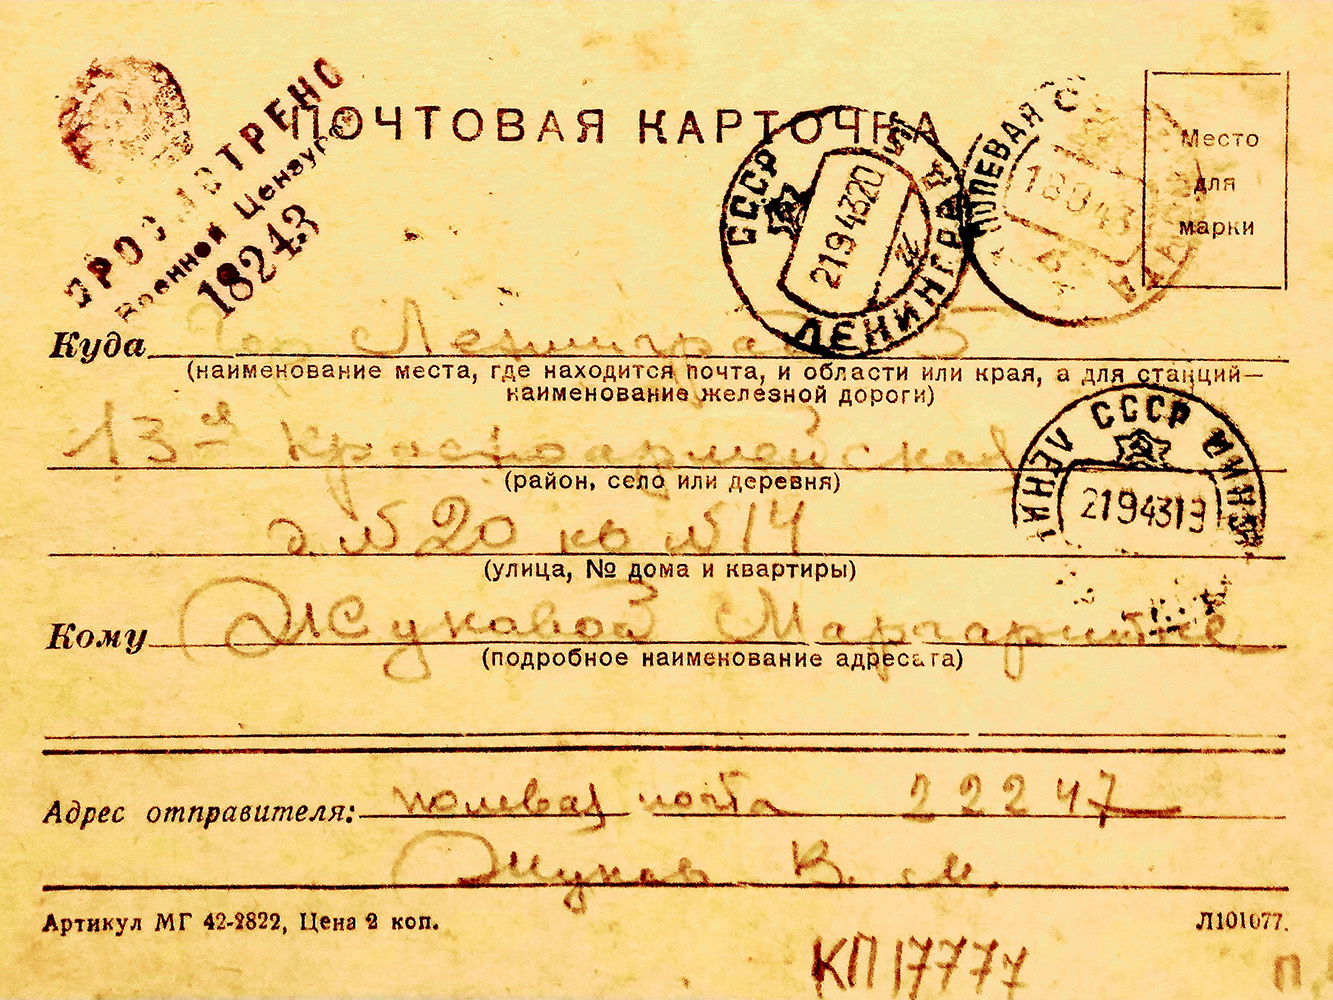 ПОЧТОВАЯ КАРТОЧКА
ПРОСМОТРЕНО
Военной Цензурой
18243
СССР ЛЕНИНГРАД
21 9 43 20
ПОЛЕВАЯ
18 9 43
Место
для
марки
Куда гор Ленинград 5
(наименование места, где находится почта, и области или края, а для станций—
наименование железной дороги)
13-я Красноармейская
(район, село или деревня)
СССР
21 9 43 19
д. № 20 кв № 14
(улица, № дома и квартиры)
Кому Жуковой Маргарите
(подробное наименование адресата)
Адрес отправителя: полевая почта 22247
Жуков В. М.
Артикул МГ 42-2822, Цена 2 коп.
Л101077.
КП 17777
П